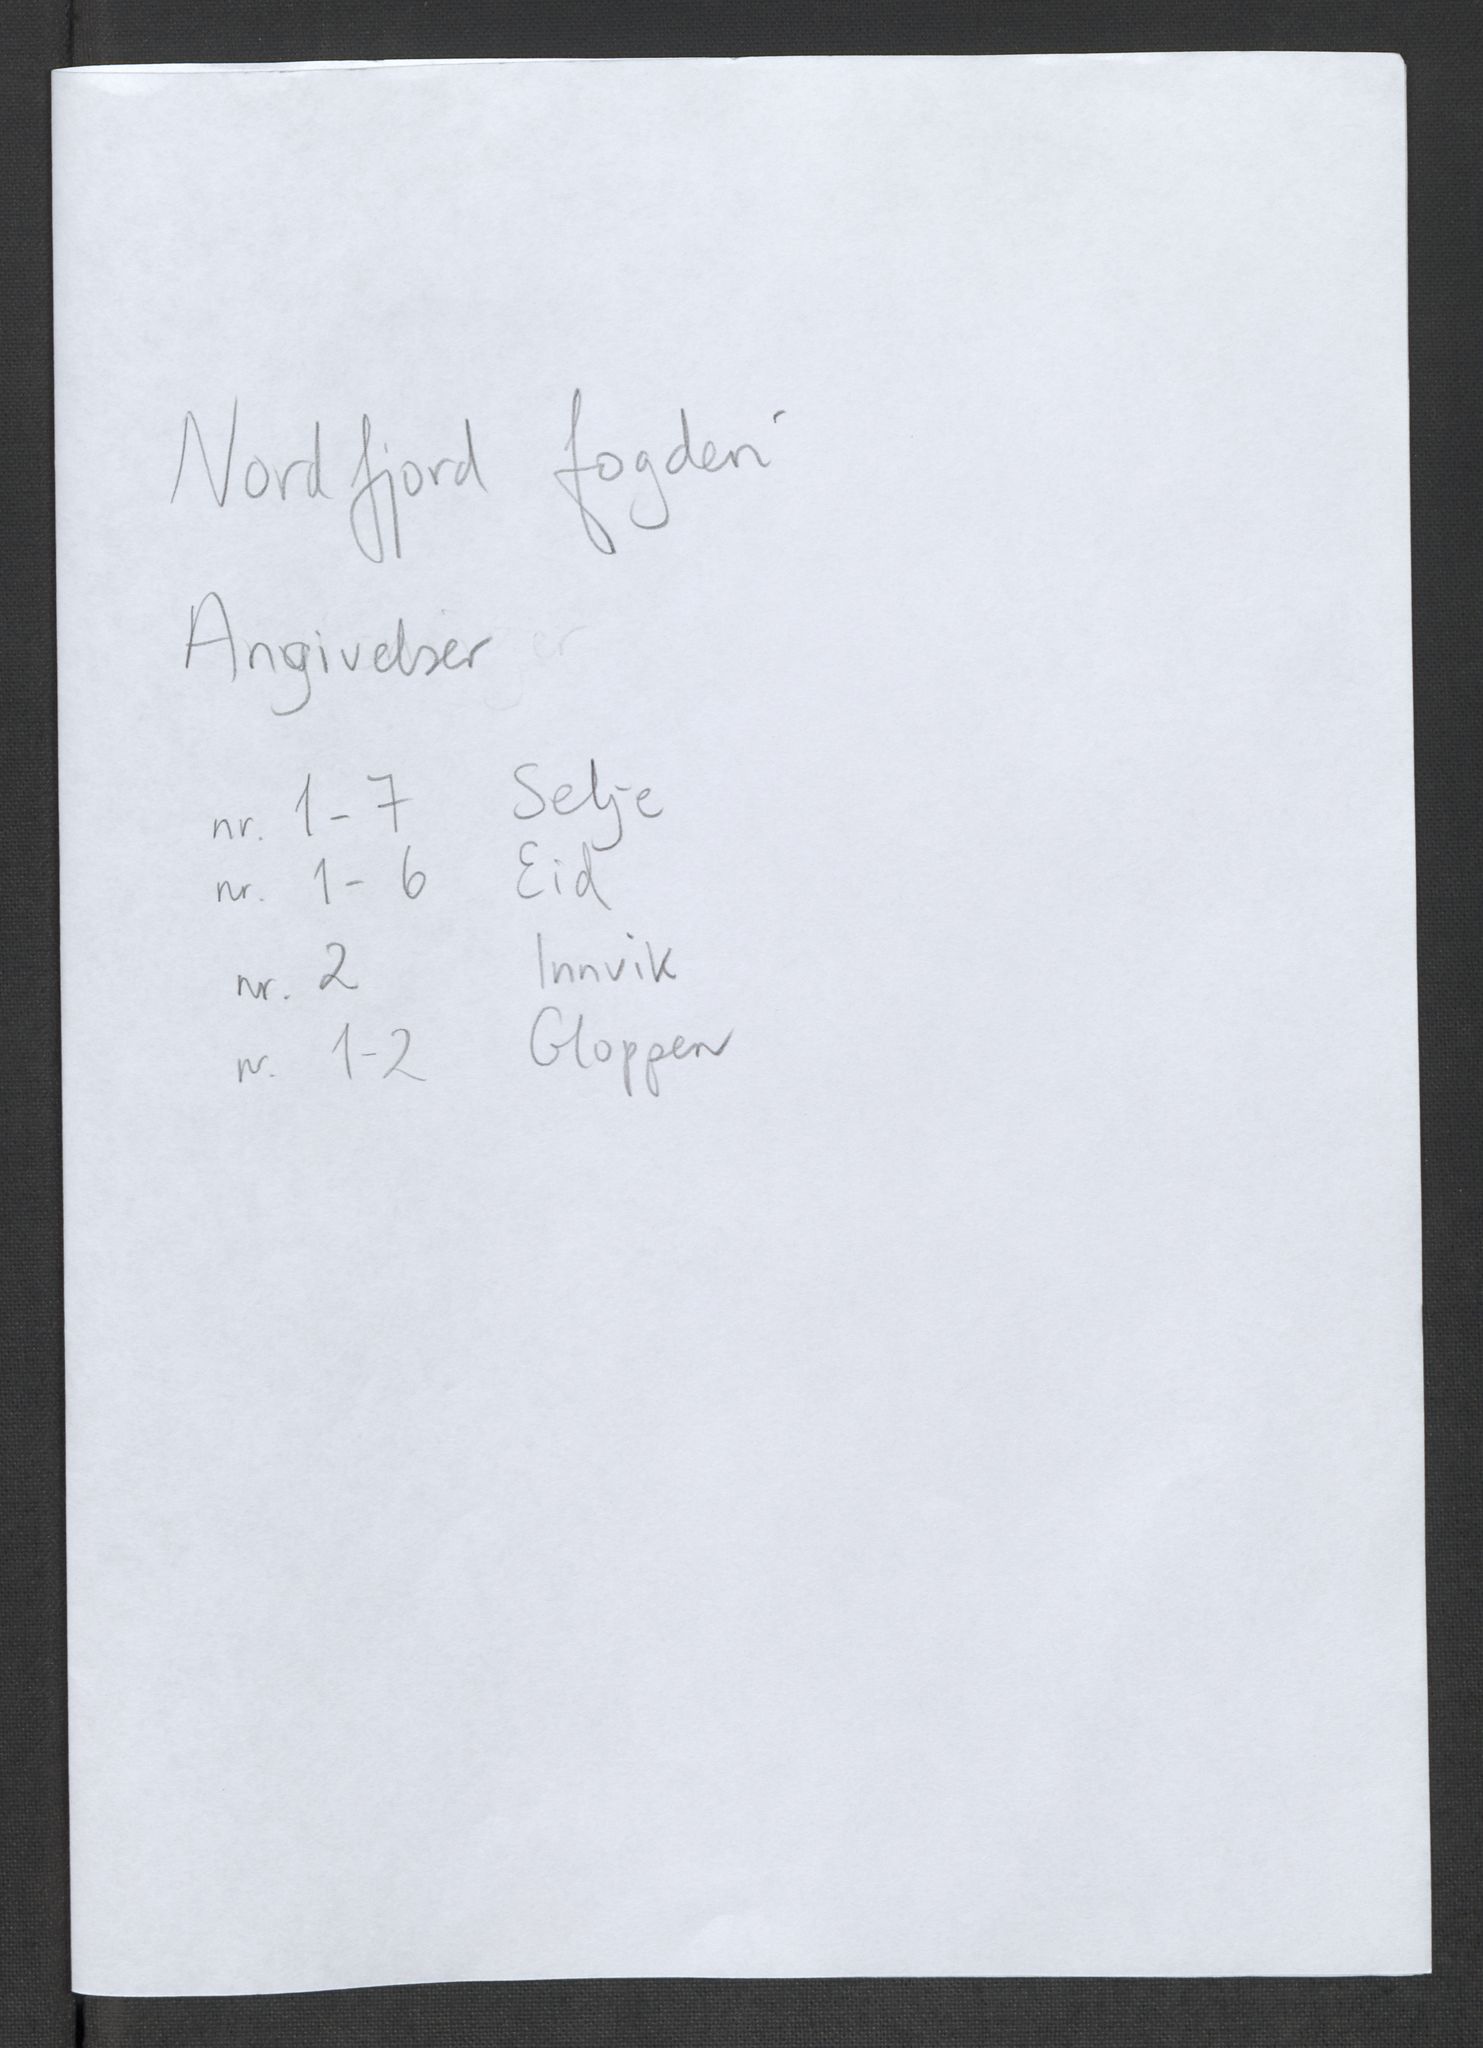 Nordfjord fogderi
Angivelser
nr. 1-7 Selje
nr. 1-6 Eid
nr. 2 Innvik
nr. 1-2 Gloppen